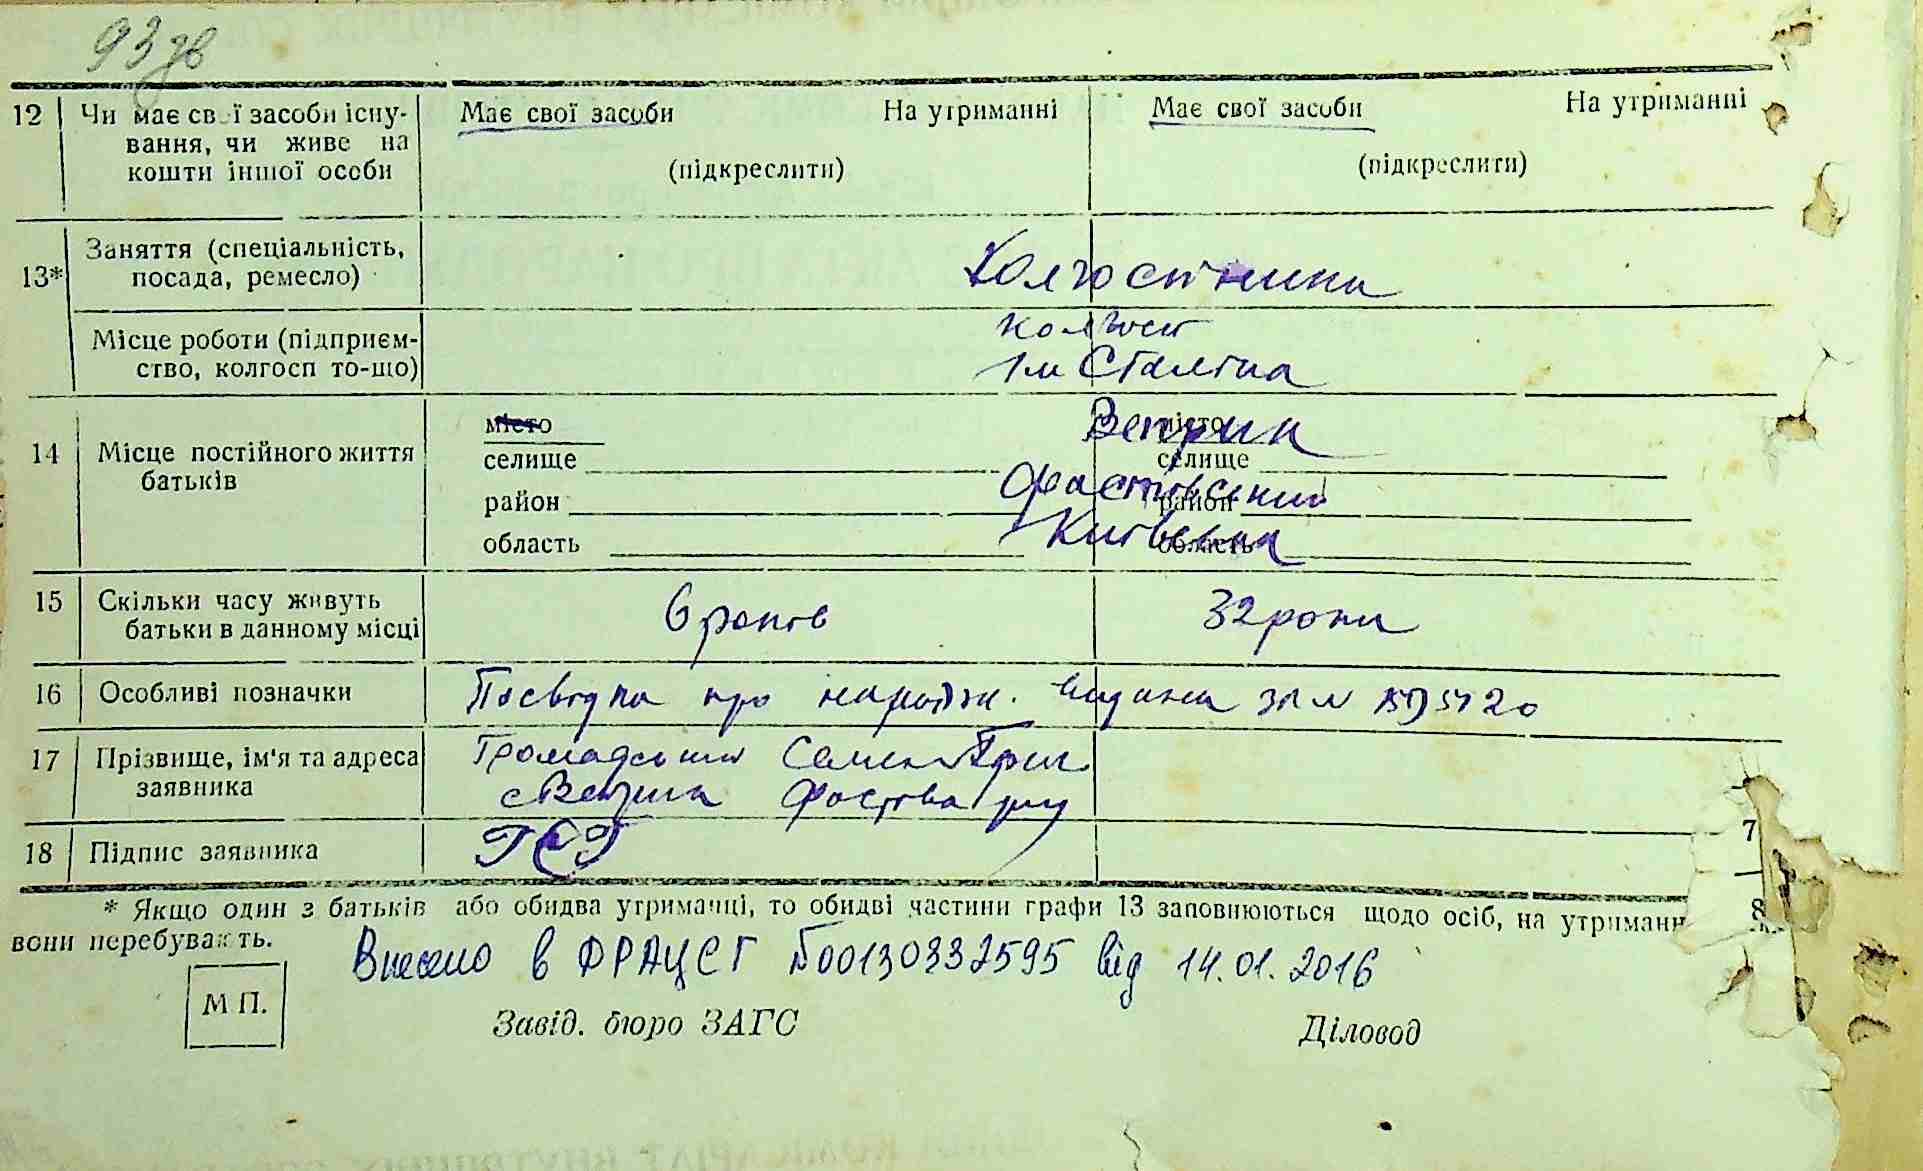 93 зв
12 Чи має свої засоби існу- Має свої засоби На утриманні Має свої засоби На утриманні
вання, чи живе на
кошти іншої особи (підкреслити) (підкреслити)
13* Заняття (спеціальність,
посада, ремесло) Колгоспники
Місце роботи (підприєм- колгосп
ство, колгосп то-що) ім Сталіна
14 Місце постійного життя місто місто Веприк
батьків селище селище
район район Фастівський
область область Київська
15 Скільки часу живуть 6 років 32 роки
батьки в данному місці
16 Особливі позначки Посвідка про народж. видана за №
17 Прізвище, ім'я та адреса Громадський Семен Григ
заявника с Веприк Фастова р-ну
18 Підпис заявника ГСГ
7
8
* Якщо один з батьків або обидва утриманці, то обидві частини графи 13 заповнюються щодо осіб, на утриманн
вони перебувають.
Внесено в ФРАЦСГ №00130332595 від 14.01.2016
М П.
Завід. бюро ЗАГС Діловод